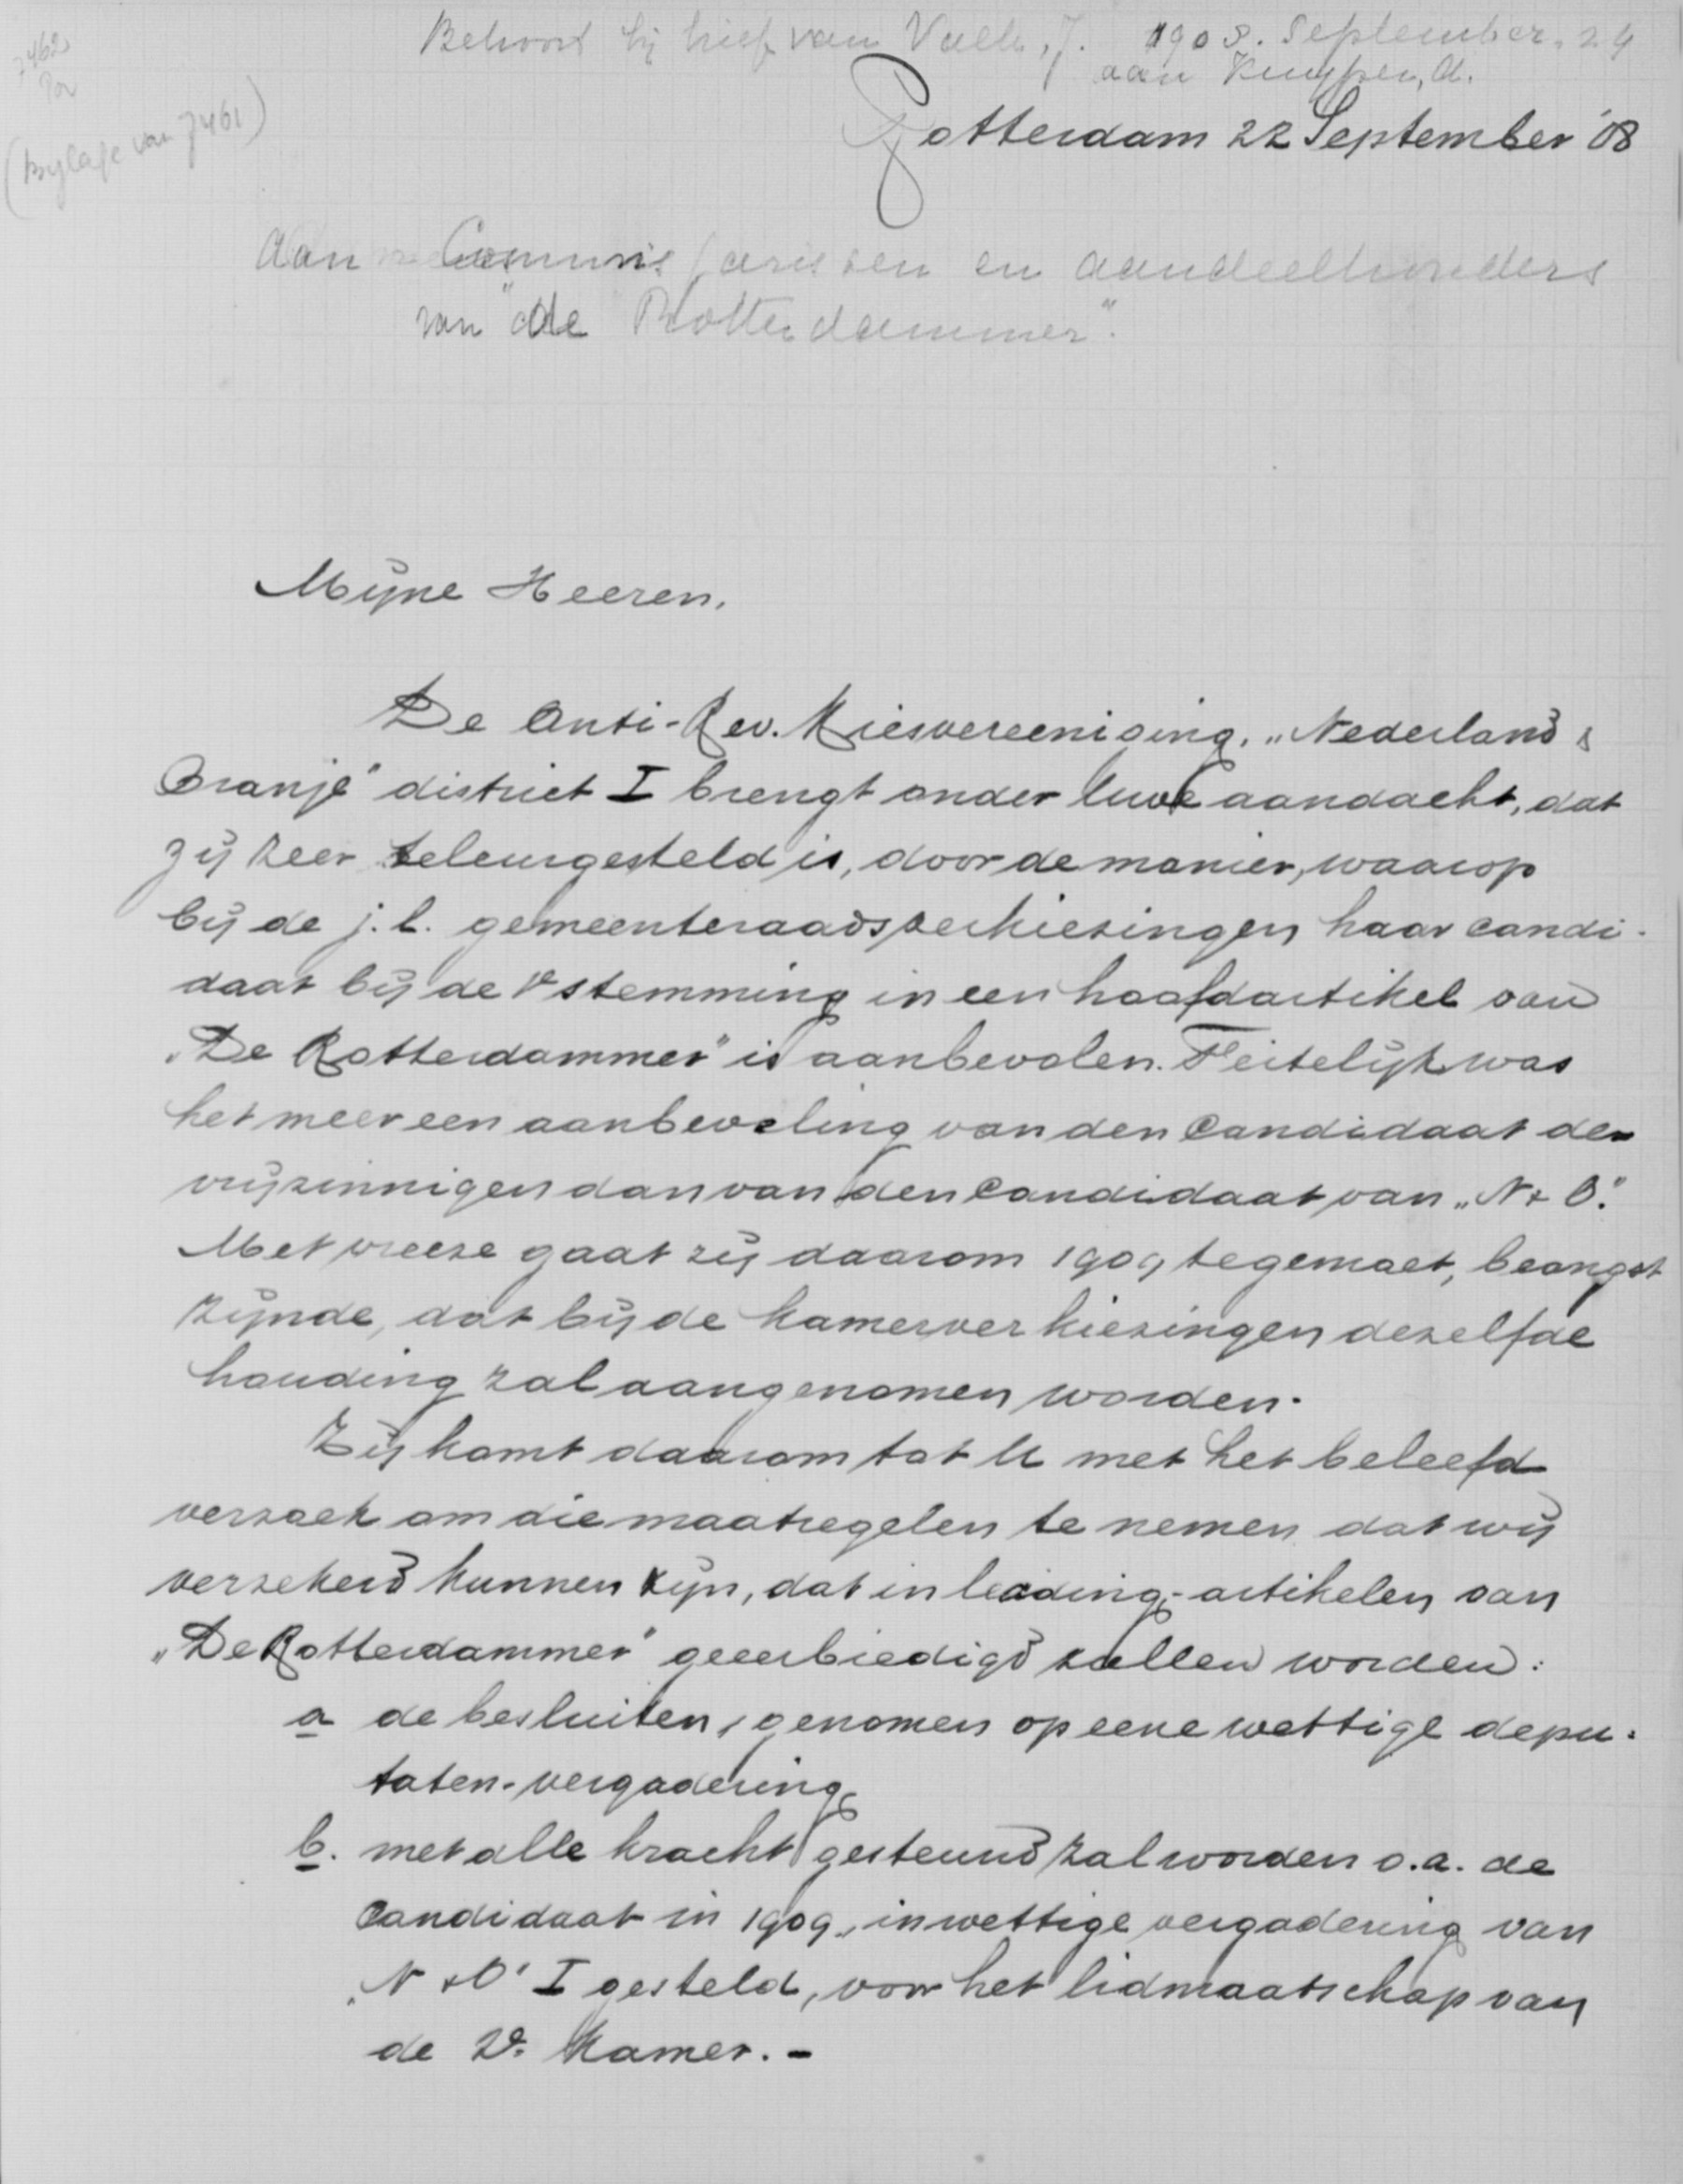 Behoort bij brief van Valk, J. 1908. September, 24
aan Kuyper, A.
7462
(Bylage van 7461)
Rotterdam 22 September '08
Aan Commissarissen en aandeelhouders
van "de Rotterdammer".
Mijne Heeren,
De Anti-Rev. Kiesvereeniging, „Nederland &
Oranje" district I brengt onder Uwe aandacht, dat
zij zeer teleurgesteld is, door de manier, waarop
bij de j.l. gemeenteraadsverkiezingen haar candi-
daat bij de 1e stemming in een hoofdartikel van
„De Rotterdammer" is aanbevolen. Feitelijk was
het meer een aanbeveling van den candidaat der
vrijzinnigen dan van den candidaat van „N + O."
Met vreeze gaat zij daarom 1909 tegemoet, beangst
zijnde, dat bij de Kamerverkiezingen dezelfde
houding zal aangenomen worden.
Zij komt daarom tot U met het beleefd
verzoek om die maatregelen te nemen dat wij
verzekerd kunnen zijn, dat in leading-artikelen van
„De Rotterdammer" geeerbiedigd zullen worden:
a de besluiten, genomen op eene wettige depu-
taten-vergadering
b. met alle kracht gesteund zal worden o.a. de
candidaat in 1909, in wettige vergadering van
„N + O" I gesteld, voor het lidmaatschap van
de 2e Kamer. -